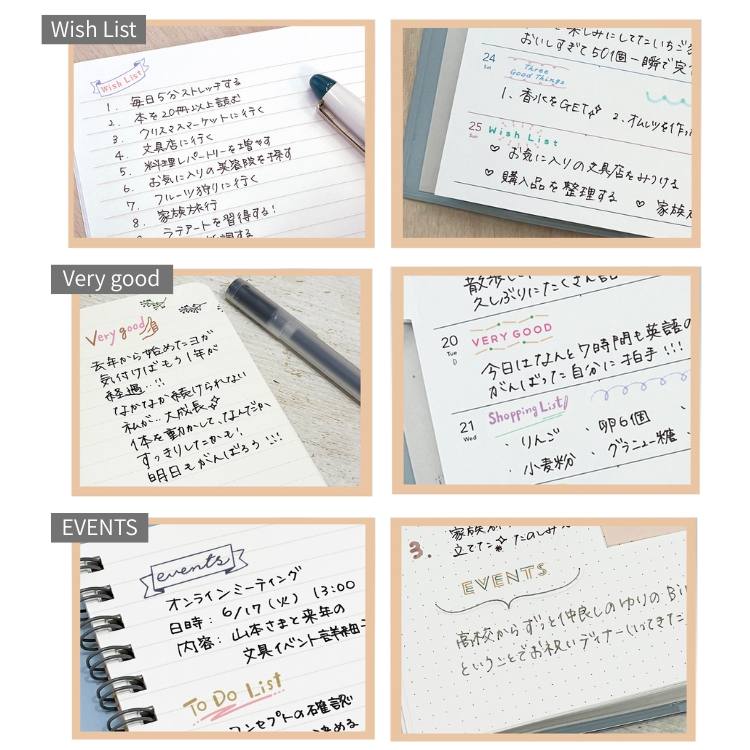 Wish List
Wish List
1. 毎日5分ストレッチする
2. 本を20冊以上読む
3. クリスマスマーケットに行く
4. 文具店に行く
5. 料理レパートリーを増やす
6. お気に入りの美容院を探す
7. フルーツ狩りに行く
8. 家族旅行
ラテアートを習得する!
楽しみにしてたいちご
おいしすぎて50個一瞬で完
24
Sat
Three
Good Things
1、香水をGET
2、オムレツを作
25
Sun
Wish List
♡ お気に入りの文具店をみつける
♡ 購入品を整理する ♡ 家族
Very good
Very good
去年から始めたヨガ
気付けばもう1年が
経過...!!
なかなか続けられない
私が...大成長
体を動かして、なんだか
すっきりしたかも!
明日もがんばろう!!!
久しぶりにたくさん
20
Tue
VERY GOOD
今日はなんと7時間も英語の
がんばった自分に拍手!!!
21
Wed
Shopping List
・りんご ・卵6個
・小麦粉 ・グラニュー糖
EVENTS
events
オンラインミーティング
日時: 6/17(火) 13:00
内容: 山本さまと来年の
文具イベント詳細
To Do List
コンセプトの確認
決める
3.
家族
立てた たのしみ
EVENTS
高校からずっと仲良しのゆりの Bi
ということでお祝いディナー行ってきた